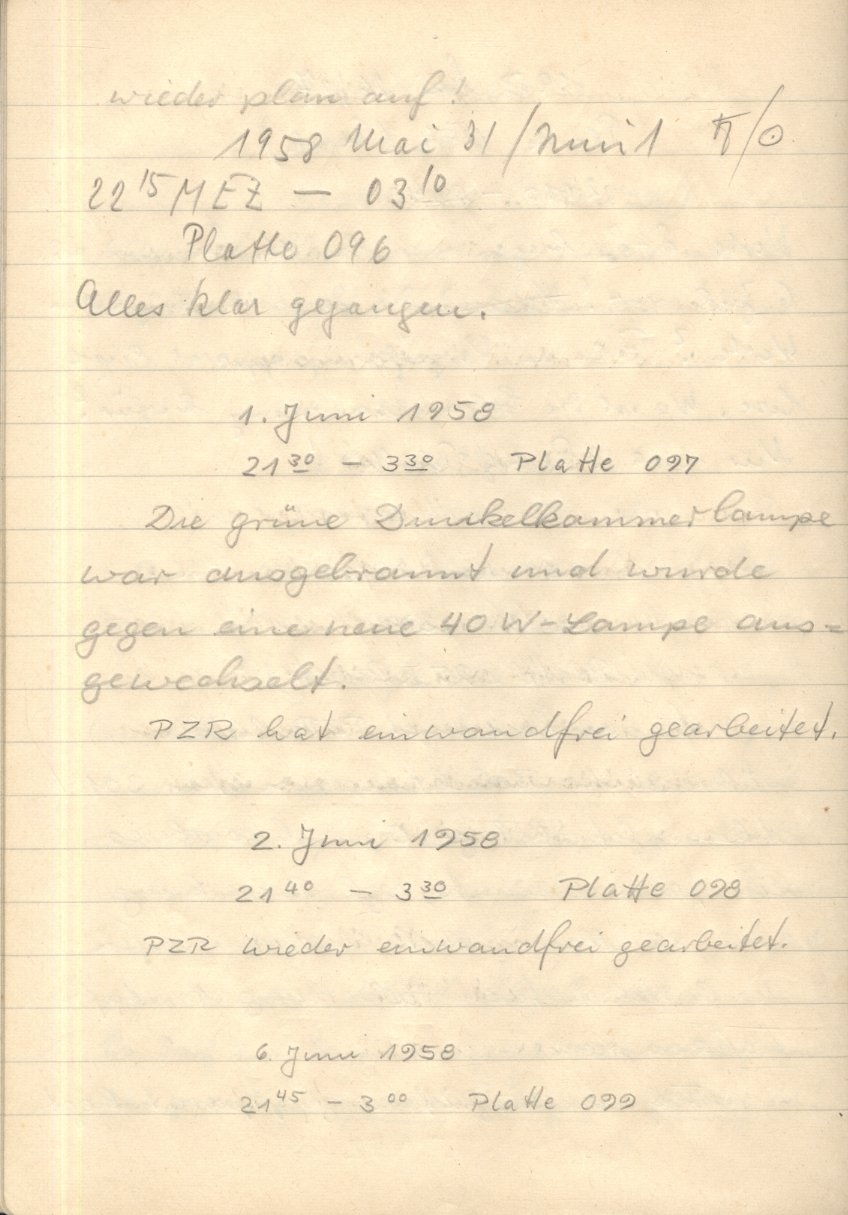 wieder plan auf!
1958 Mai 31/Juni 1 ♄/☉
22 15 MEZ — 03 10
Platte 096
Alles klar gegangen.
1. Juni 1958
21 30 — 3 30 Platte 097
Die grüne Dunkelkammerlampe
war ausgebrannt und wurde
gegen eine neue 40 W-Lampe aus=
gewechselt.
PZR hat einwandfrei gearbeitet.
2. Juni 1958
21 40 — 3 30 Platte 098
PZR wieder einwandfrei gearbeitet.
6. Juni 1958
21 45 — 3 00 Platte 099